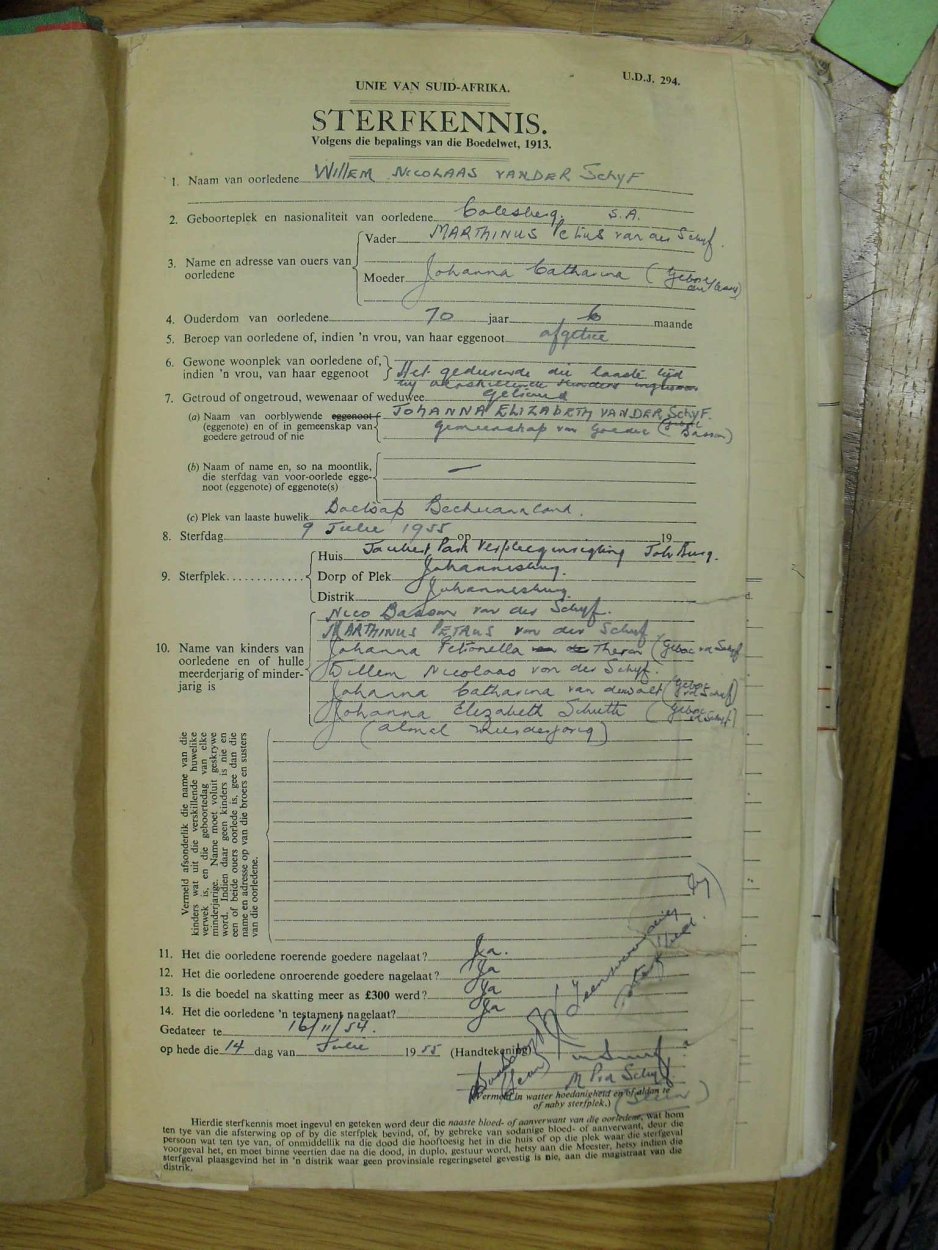 U.D.J. 294.
UNIE VAN SUID-AFRIKA.
STERFKENNIS.
Volgens die bepalings van die Boedelwet, 1913.
1. Naam van oorledene Willem Nicolaas van der Schyf
2. Geboorteplek en nasionaliteit van oorledene Colesberg. S.A.
3. Name en adresse van ouers van oorledene
Vader Marthinus Petrus van der Schyf.
Moeder Johanna Catharina (Gebore
4. Ouderdom van oorledene 70 jaar 6 maande
5. Beroep van oorledene of, indien 'n vrou, van haar eggenoot afgetree
6. Gewone woonplek van oorledene of, indien 'n vrou, van haar eggenoot
Het gedurende die laaste tyd
by verskillende kinders
7. Getroud of ongetroud, wewenaar of weduwee Getroud
(a) Naam van oorblywende eggenoot (eggenote) en of in gemeenskap van goedere getroud of nie
Johanna Elizabeth van der Schyf.
gemeenskap van Goedere (gebore Basson)
(b) Naam of name en, so na moontlik, die sterfdag van voor-oorlede eggenoot (eggenote) of eggenote(s) —
(c) Plek van laaste huwelik Bechuanaland.
8. Sterfdag 9 Julie 1955 op 19
9. Sterfplek
Huis Joubert Park Verpleeginrigting Joh Burg.
Dorp of Plek Johannesburg.
Distrik Johannesburg.
10. Name van kinders van oorledene en of hulle meerderjarig of minderjarig is
Nico Basson van der Schyf.
Marthinus Petrus van der Schyf
Johanna Petronella Theron (gebore vd Schyf
Willem Nicolaas van der Schyf
Johanna Catharina van der Walt (gebore vd Schyf)
Johanna Elizabeth Schutte (gebore vd Schyf)
(almal meerderjarig)
Vermeld afsonderlik die name van die
kinders wat uit die verskillende huwelike
verwek is, en die geboortedag van elke
minderjarige. Name moet voluit geskrywe
word. Indien daar geen kinders is nie en
een of beide ouers oorlede is, gee dan die
name en adresse op van die broers en susters
van die oorledene.
11. Het die oorledene roerende goedere nagelaat? Ja.
12. Het die oorledene onroerende goedere nagelaat? Ja
13. Is die boedel na skatting meer as £300 werd? Ja
14. Het die oorledene 'n testament nagelaat? Ja
Gedateer te 16/11/54.
op hede die 14 dag van Julie 1955 (Handtekening)
M P vd Schyf.
(Vermeld in watter hoedanigheid en of aldan te
of naby sterfplek.) (Seun)
Hierdie sterfkennis moet ingevul en geteken word deur die naaste bloed- of aanverwant van die oorledene, wat hom
ten tye van die afsterwing op of by die sterfplek bevind, of, by gebreke van sodanige bloed- of aanverwant, deur die
persoon wat ten tye van, of onmiddellik na die dood die hooftoesig het in die huis of op die plek waar die sterfgeval
voorgeval het, en moet binne veertien dae na die dood, in duplo, gestuur word, hetsy aan die Meester, hetsy indien die
sterfgeval plaasgevind het in 'n distrik waar geen provinsiale regeringsetel gevestig is nie, aan die magistraat van die
distrik.